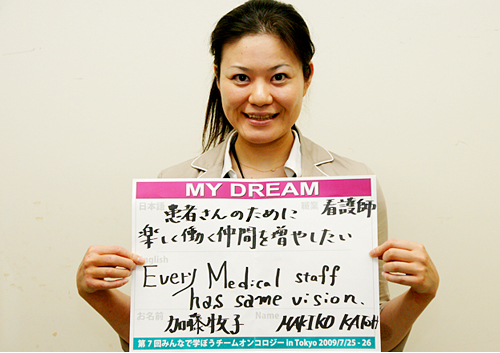 MY DREAM
日本語 職種 看護師
患者さんのために
楽しく働く仲間を増やしたい
English
Every Medical staff
has same vision.
お名前 加藤牧子 Name MAKIKO KATOH
第7回みんなで学ぼうチームオンコロジー in Tokyo 2009/7/25 - 26